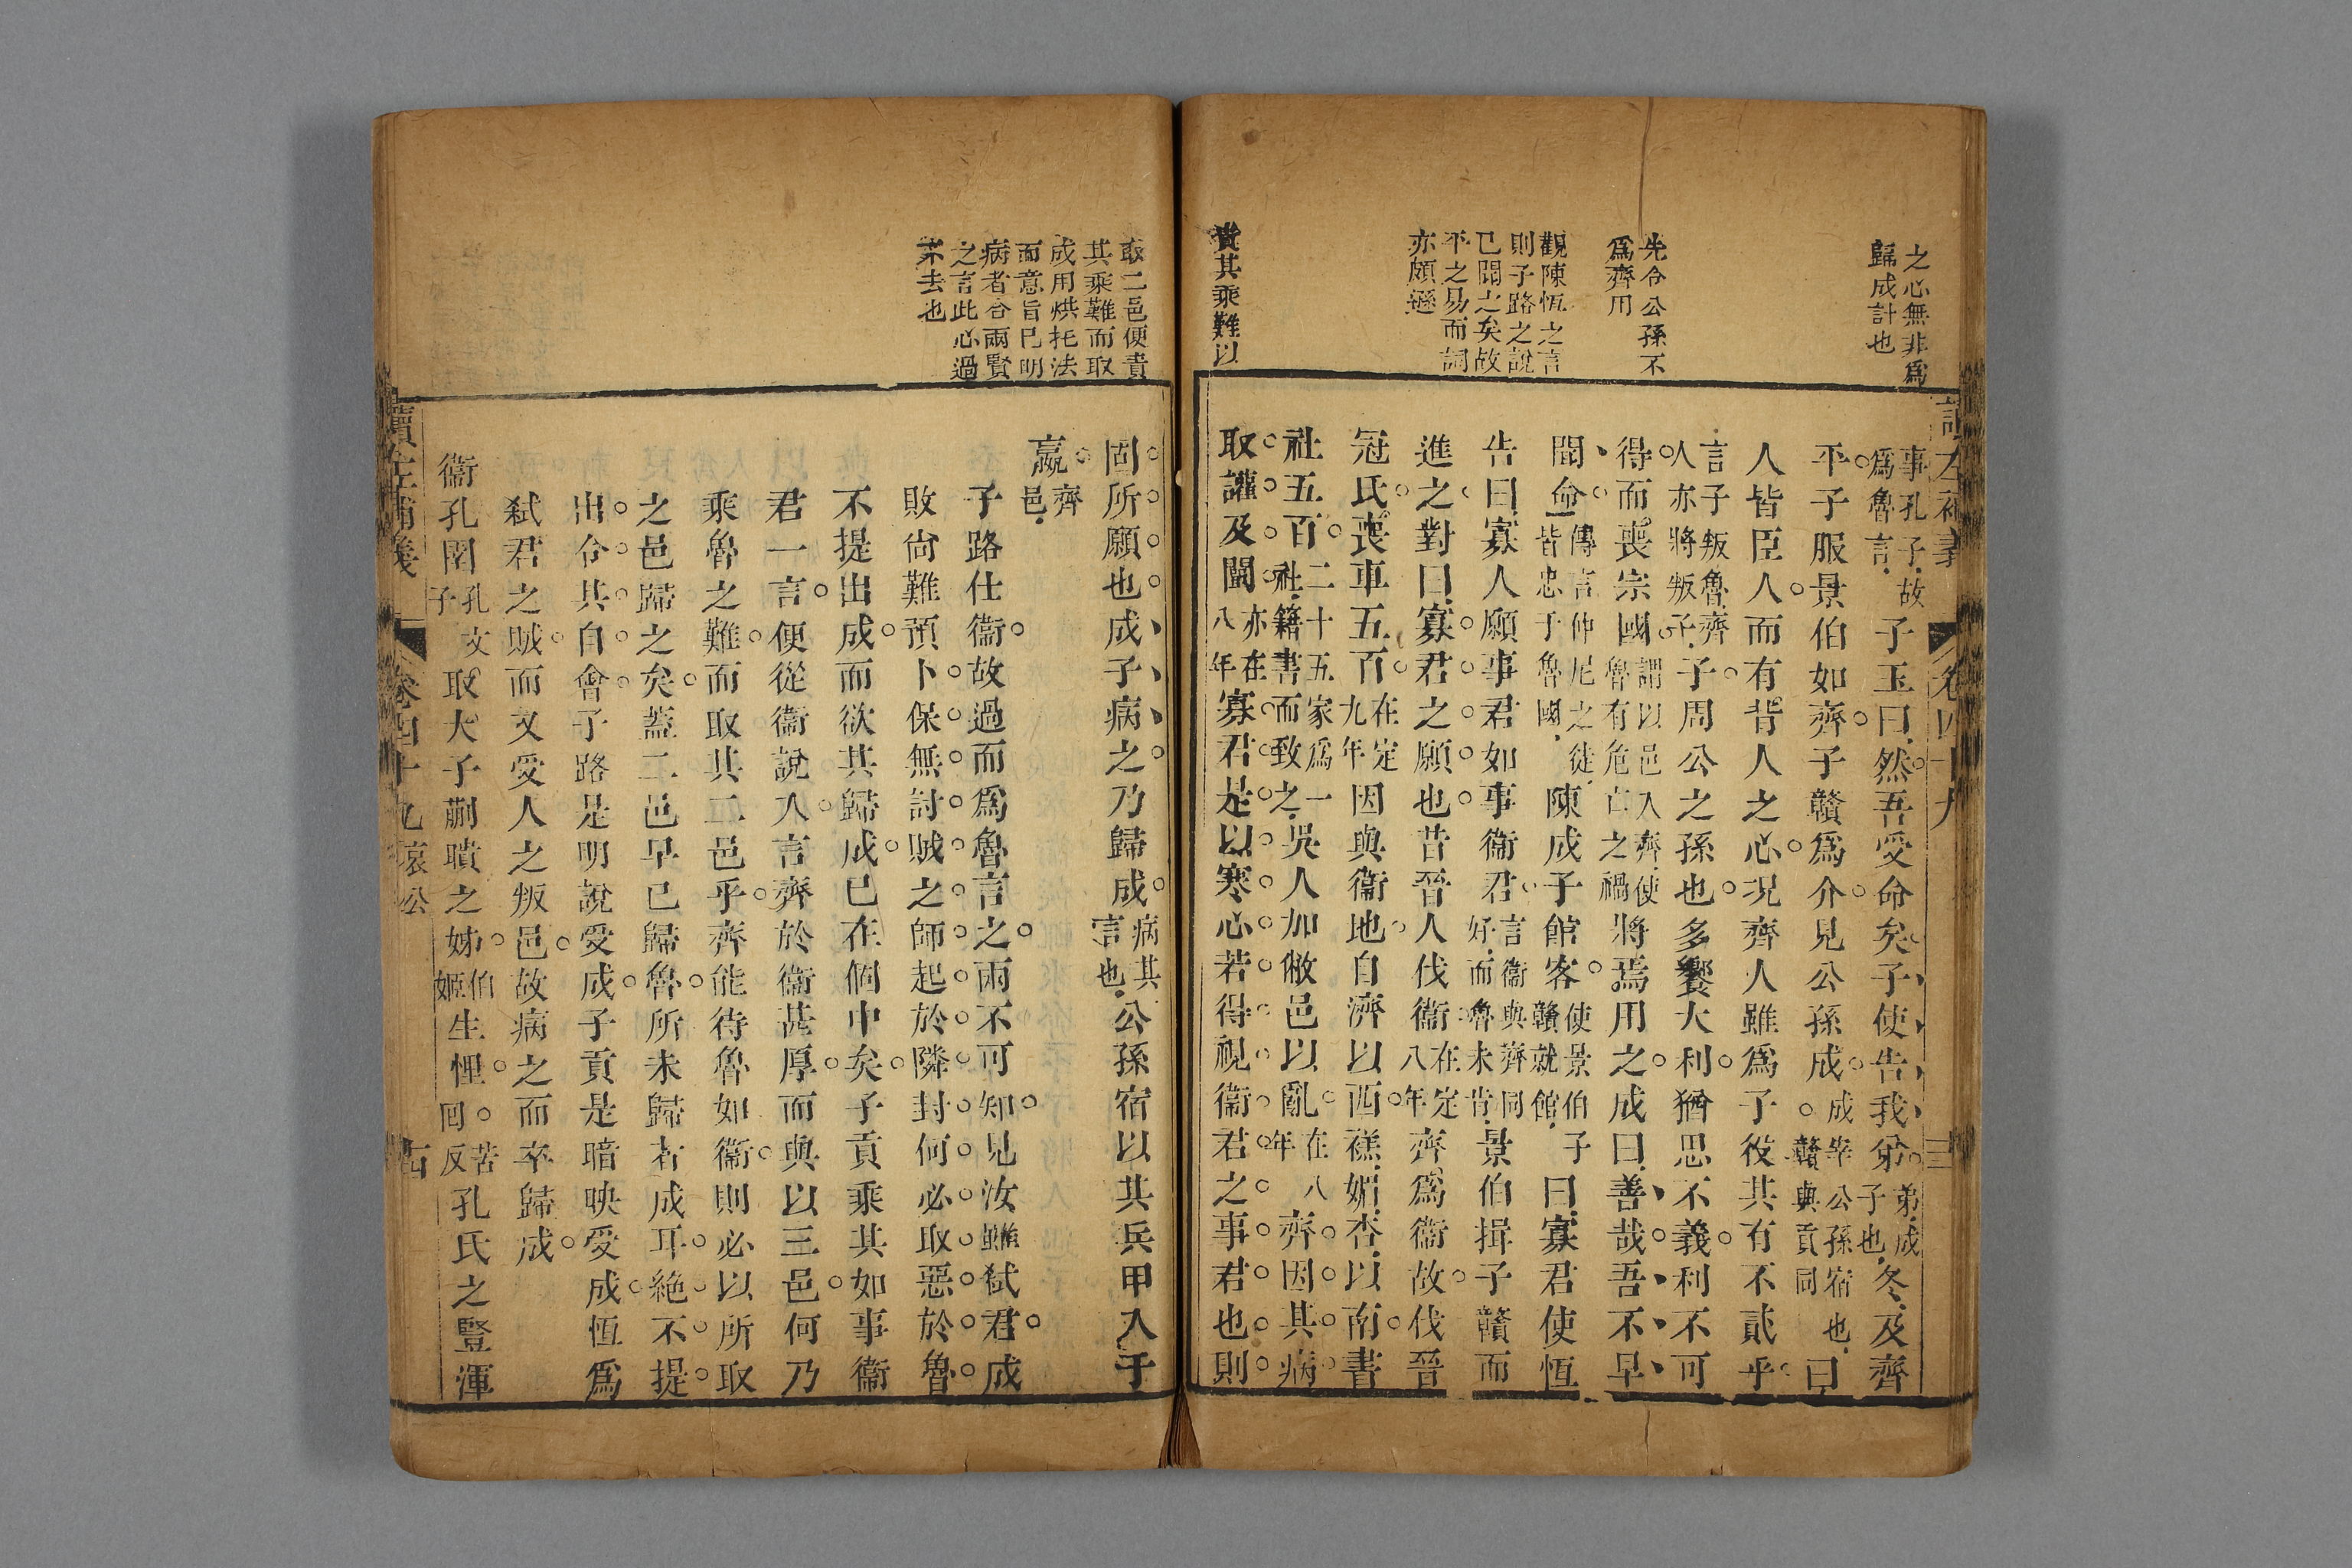 之心無非爲
歸成計也
先令公孫不
爲齊用
觀陳恆之言
則子路之說
已聞之矣故
平之易而詞
亦頗遜
責其乘難以
讀左補義
卷四十九
事孔子故爲魯言子玉曰然吾受命矣子使告我弟弟成子也冬及齊
平子服景伯如齊子贛爲介見公孫成成宰公孫宿也贛與貢同曰
人皆臣人而有背人之心況齊人雖爲子役其有不貳乎
言子叛魯齊人亦將叛子子周公之孫也多饗大利猶思不義利不可
得而喪宗國謂以邑入齊使魯有危亡之禍將焉用之成曰善哉吾不早
聞命傳言仲尼之徒皆忠于魯國陳成子館客使景伯子贛就館曰寡君使恆
告曰寡人願事君如事衞君言衞與齊同好而魯未肯景伯揖子贛而
進之對曰寡君之願也昔晉人伐衞在定八年齊爲衞故伐晉
冠氏喪車五百在定九年因與衞地自濟以西禚媚杏以南書
社五百二十五家爲一社籍書而致之吳人加敝邑以亂在八年齊因其病
取讙及闡亦在八年寡君是以寒心若得視衞君之事君也則
取二邑便責
其乘難而取
成用烘托法
而意旨已明
病者合兩賢
之言此必過
宋去也
固所願也成子病之乃歸成病其言也公孫宿以其兵甲入于
嬴齊邑
子路仕衞故過而爲魯言之兩不可知見汝雖弑君成
敗尙難預卜保無討賊之師起於隣封何必取惡於魯
不提出成而欲其歸成已在個中矣子貢乘其如事衞
君一言便從衞說入言齊於衞甚厚而與以三邑何乃
乘魯之難而取其二邑乎齊能待魯如衞則必以所取
之邑歸之矣蓋二邑早已歸魯所未歸者成耳絶不提
出令其自會子路是明說受成子貢是暗映受成恆爲
弑君之賊而又受人之叛邑故病之而卒歸成
衞孔圉孔文子取大子蒯聵之姊伯姬生悝苦回反孔氏之豎渾
讀左補義
卷四十九哀公